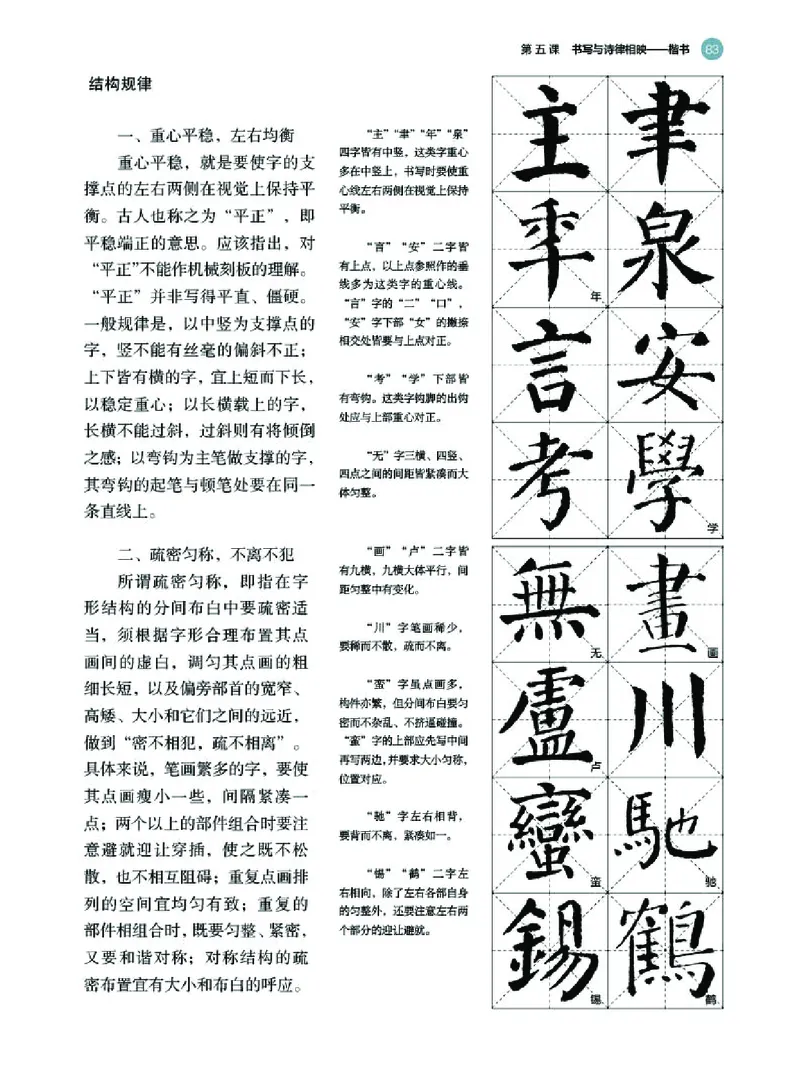 第五课 书写与诗律相映——楷书 83
结构规律
一、重心平稳，左右均衡
重心平稳，就是要使字的支
撑点的左右两侧在视觉上保持平
衡。古人也称之为“平正”，即
平稳端正的意思。应该指出，对
“平正”不能作机械刻板的理解。
“平正”并非写得平直、僵硬。
一般规律是，以中竖为支撑点的
字，竖不能有丝毫的偏斜不正；
上下皆有横的字，宜上短而下长，
以稳定重心；以长横载上的字，
长横不能过斜，过斜则有将倾倒
之感；以弯钩为主笔做支撑的字，
其弯钩的起笔与顿笔处要在同一
条直线上。
二、疏密匀称，不离不犯
所谓疏密匀称，即指在字
形结构的分间布白中要疏密适
当，须根据字形合理布置其点
画间的虚白，调匀其点画的粗
细长短，以及偏旁部首的宽窄、
高矮、大小和它们之间的远近，
做到“密不相犯，疏不相离”。
具体来说，笔画繁多的字，要使
其点画瘦小一些，间隔紧凑一
点；两个以上的部件组合时要注
意避就迎让穿插，使之既不松
散，也不相互阻碍；重复点画排
列的空间宜均匀有致；重复的
部件相组合时，既要匀整、紧密，
又要和谐对称；对称结构的疏
密布置宜有大小和布白的呼应。
“主”“聿”“年”“泉”
四字皆有中竖，这类字重心
多在中竖上，书写时要使重
心线左右两侧在视觉上保持
平衡。
“言”“安”二字皆
有上点，以上点参照作的垂
线多为这类字的重心线。
“言”字的“二”“口”，
“安”字下部“女”的撇捺
相交处皆要与上点对正。
“考”“学”下部皆
有弯钩。这类字钩脚的出钩
处应与上部重心对正。
“无”字三横、四竖、
四点之间的间距皆紧凑而大
体匀整。
“画”“卢”二字皆
有九横，九横大体平行，间
距匀整中有变化。
“川”字笔画稀少，
要稀而不散，疏而不离。
“蛮”字虽点画多，
构件亦繁，但分间布白要匀
密而不杂乱、不挤逼碰撞。
“蛮”字的上部应先写中间
再写两边，并要求大小匀称，
位置对应。
“驰”字左右相背，
要背而不离，紧凑如一。
“锡”“鹤”二字左
右相向，除了左右各部自身
的匀整外，还要注意左右两
个部分的迎让避就。
主 聿
年 泉
年
言 安
考 學
学
無 畫
无 画
盧 川
卢
蠻 馳
蛮 驰
錫 鶴
锡 鹤